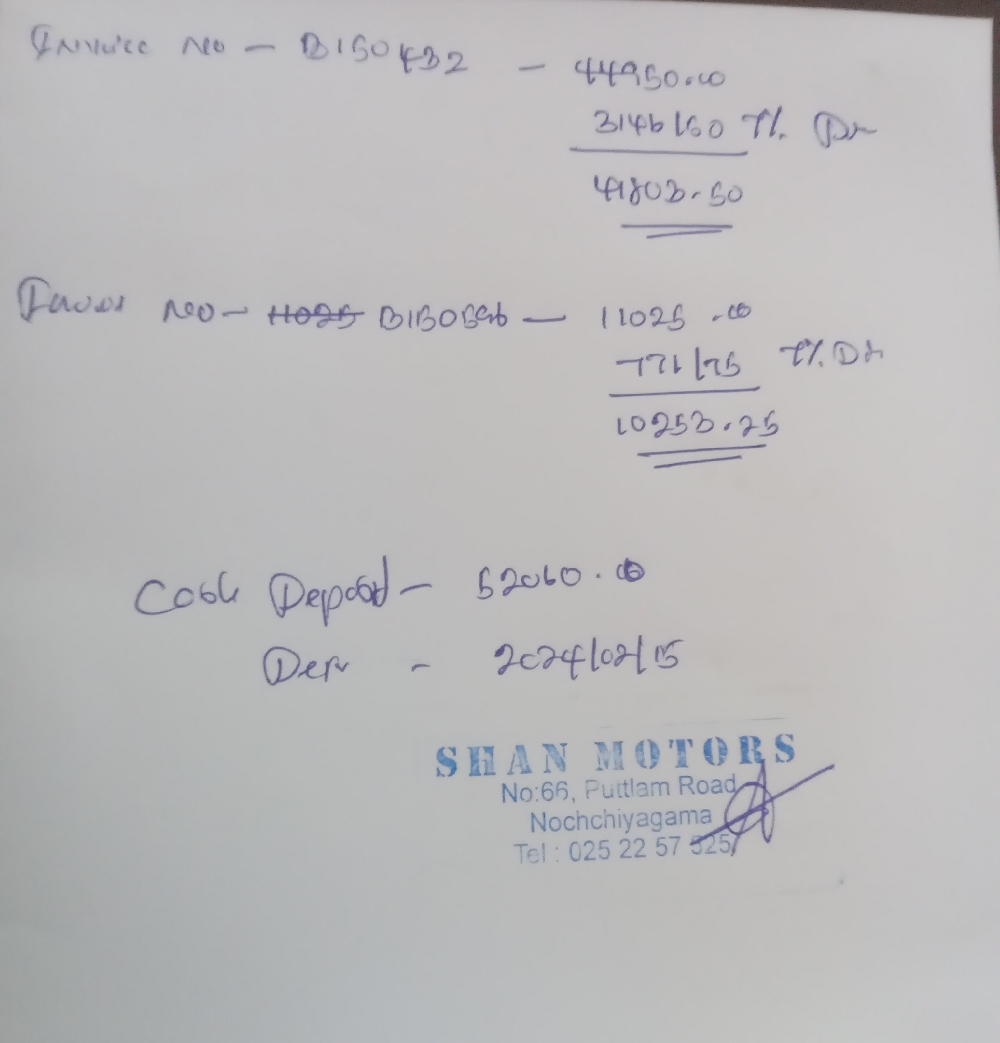 Invoice No - B150432 - 44950.00
3146/50 7% Dr
41803.50
Invoi No - 11025 B150596 - 11025.00
771/75 7% Dr
10253.25
Cash Deposit - 52060.00
Date - 2024/02/15
SHAN MOTORS
No:66, Puttlam Road
Nochchiyagama
Tel : 025 22 57 525